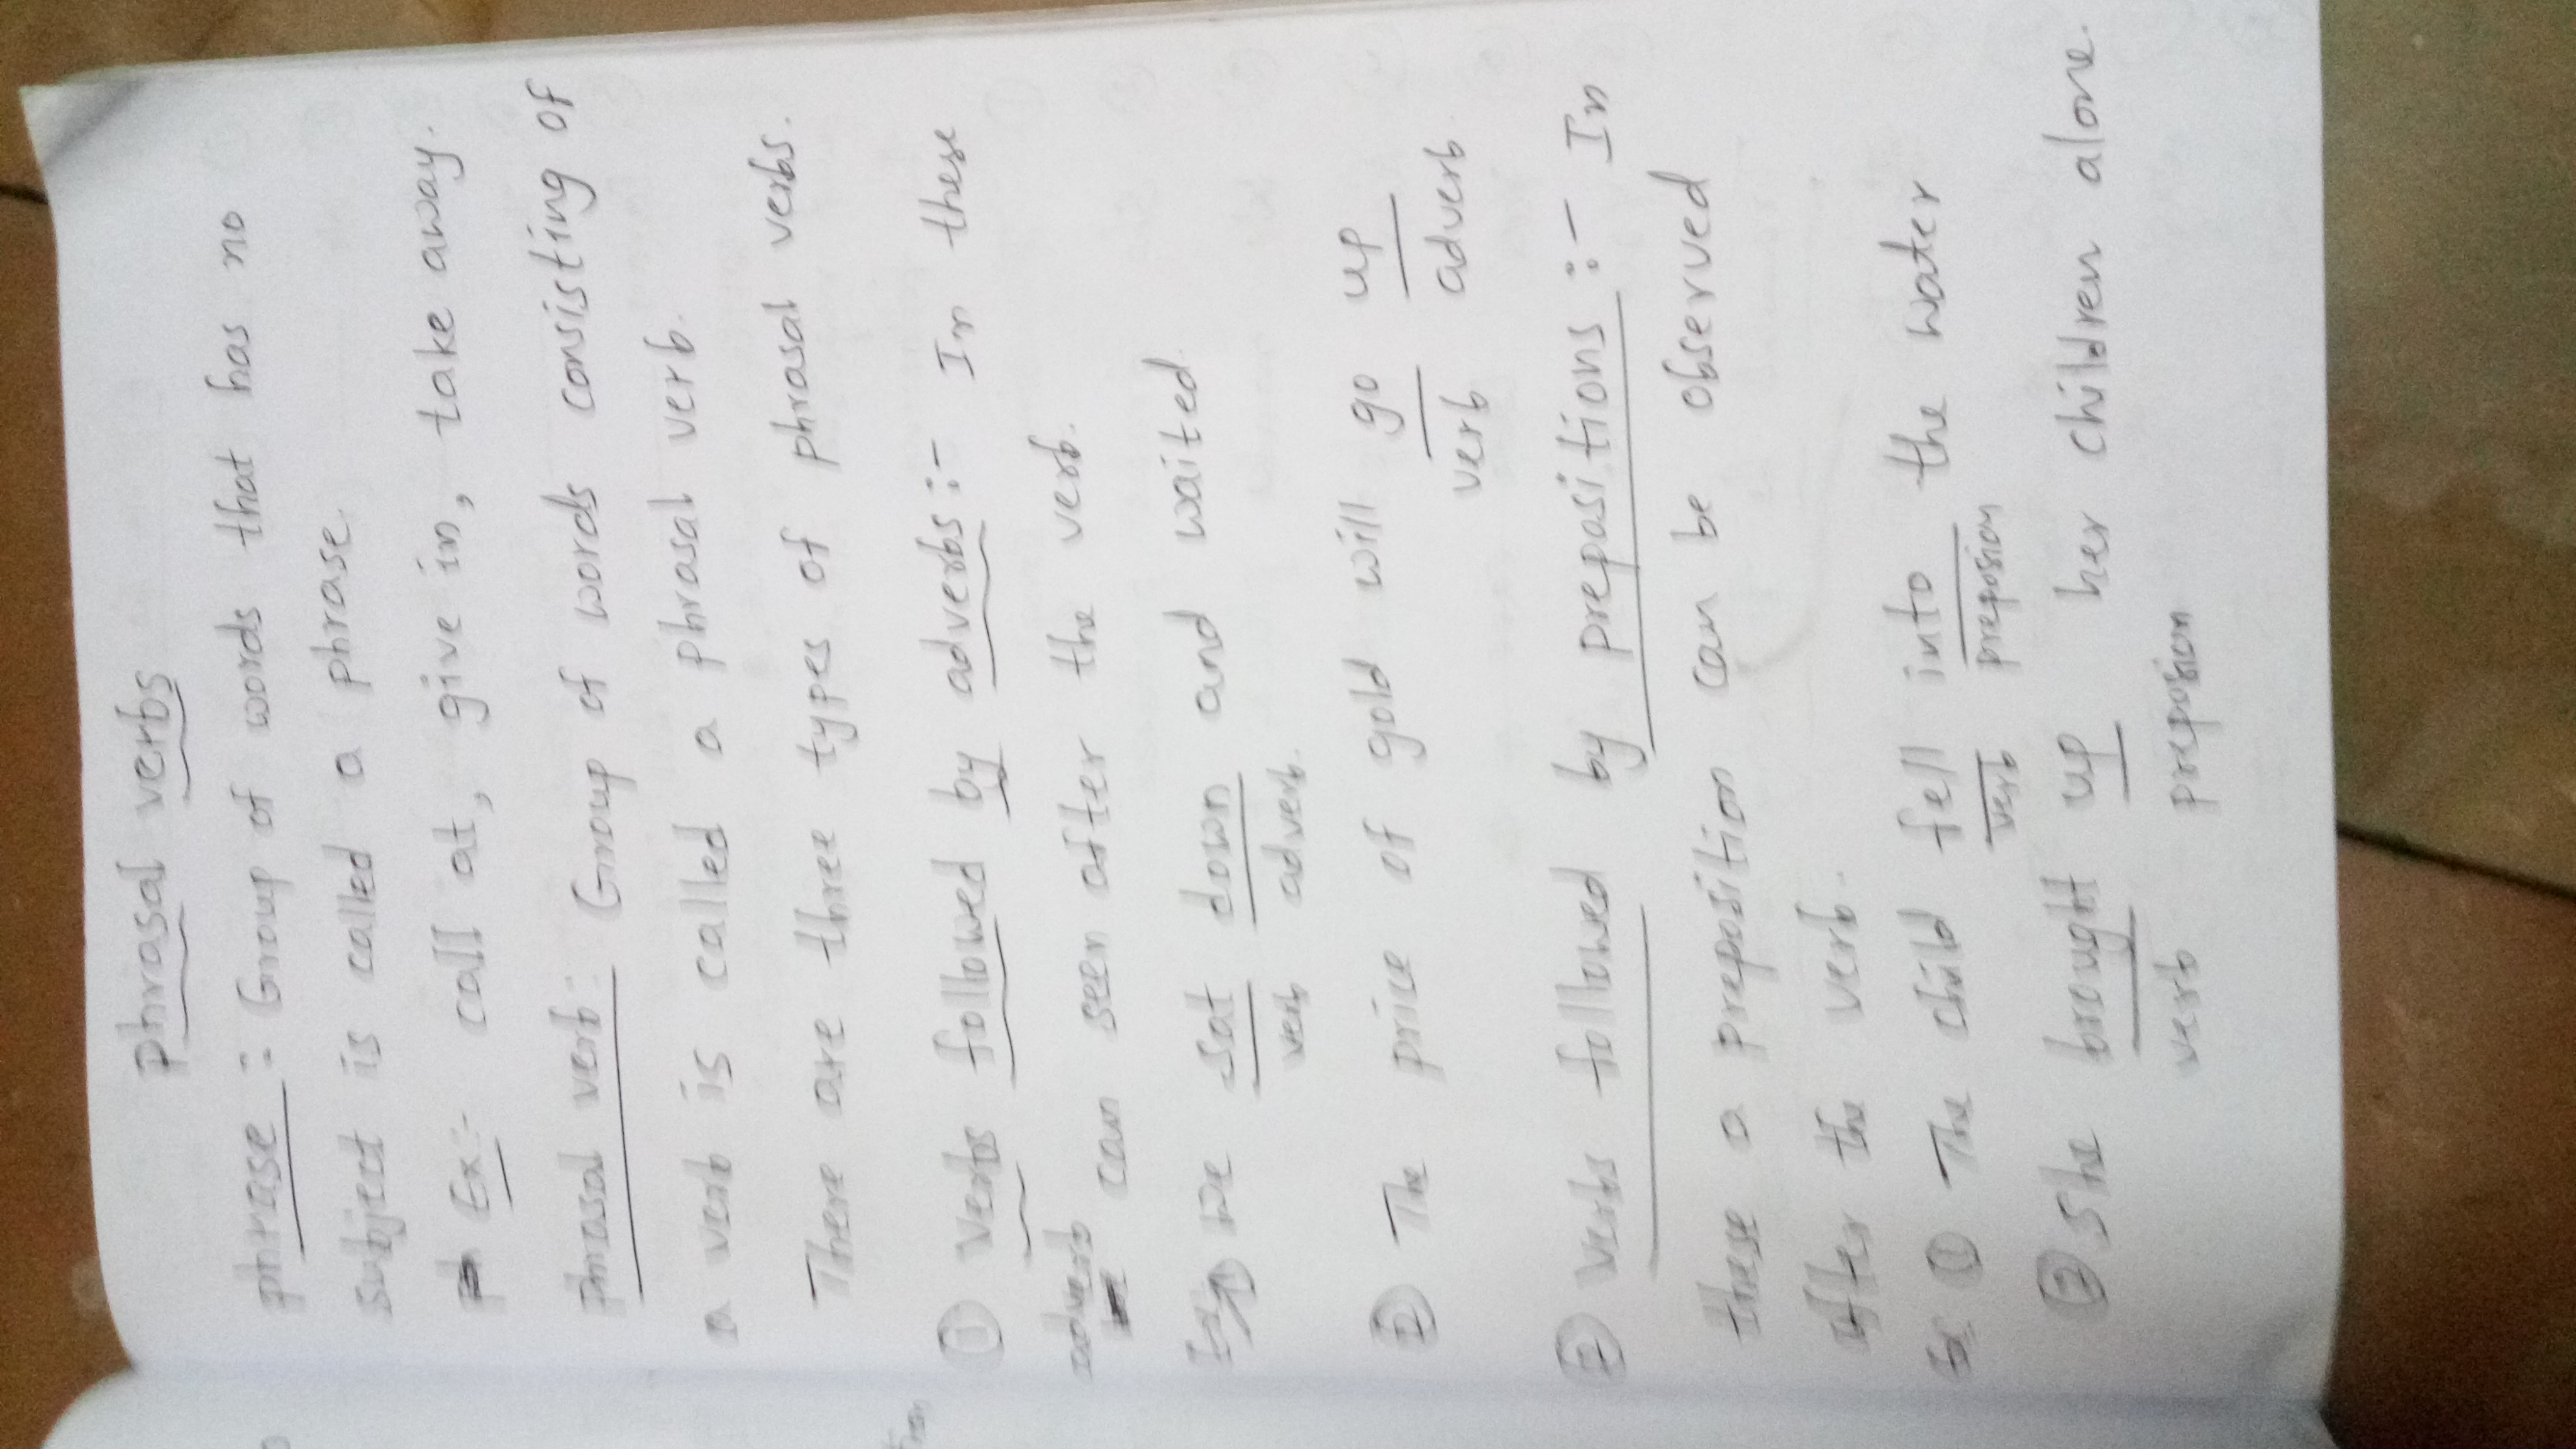 Phrasal verbs
phrase :- Group of words that has no
subject is called a phrase.
Ex:- call at, give in, take away.
phrasal verb:- Group of words consisting of
a verb is called a phrasal verb.
There are three types of phrasal verbs.
① verbs followed by adverbs :- In these
adverb can seen after the verb.
① we sat down and waited.
verb adverb.
② The price of gold will go up
verb adverb
② verbs followed by prepositions :- In
these a preposition can be observed
after the verb.
Ex ① The child fell into the water
verb preposion
② She brought up her children alone.
verb preposion